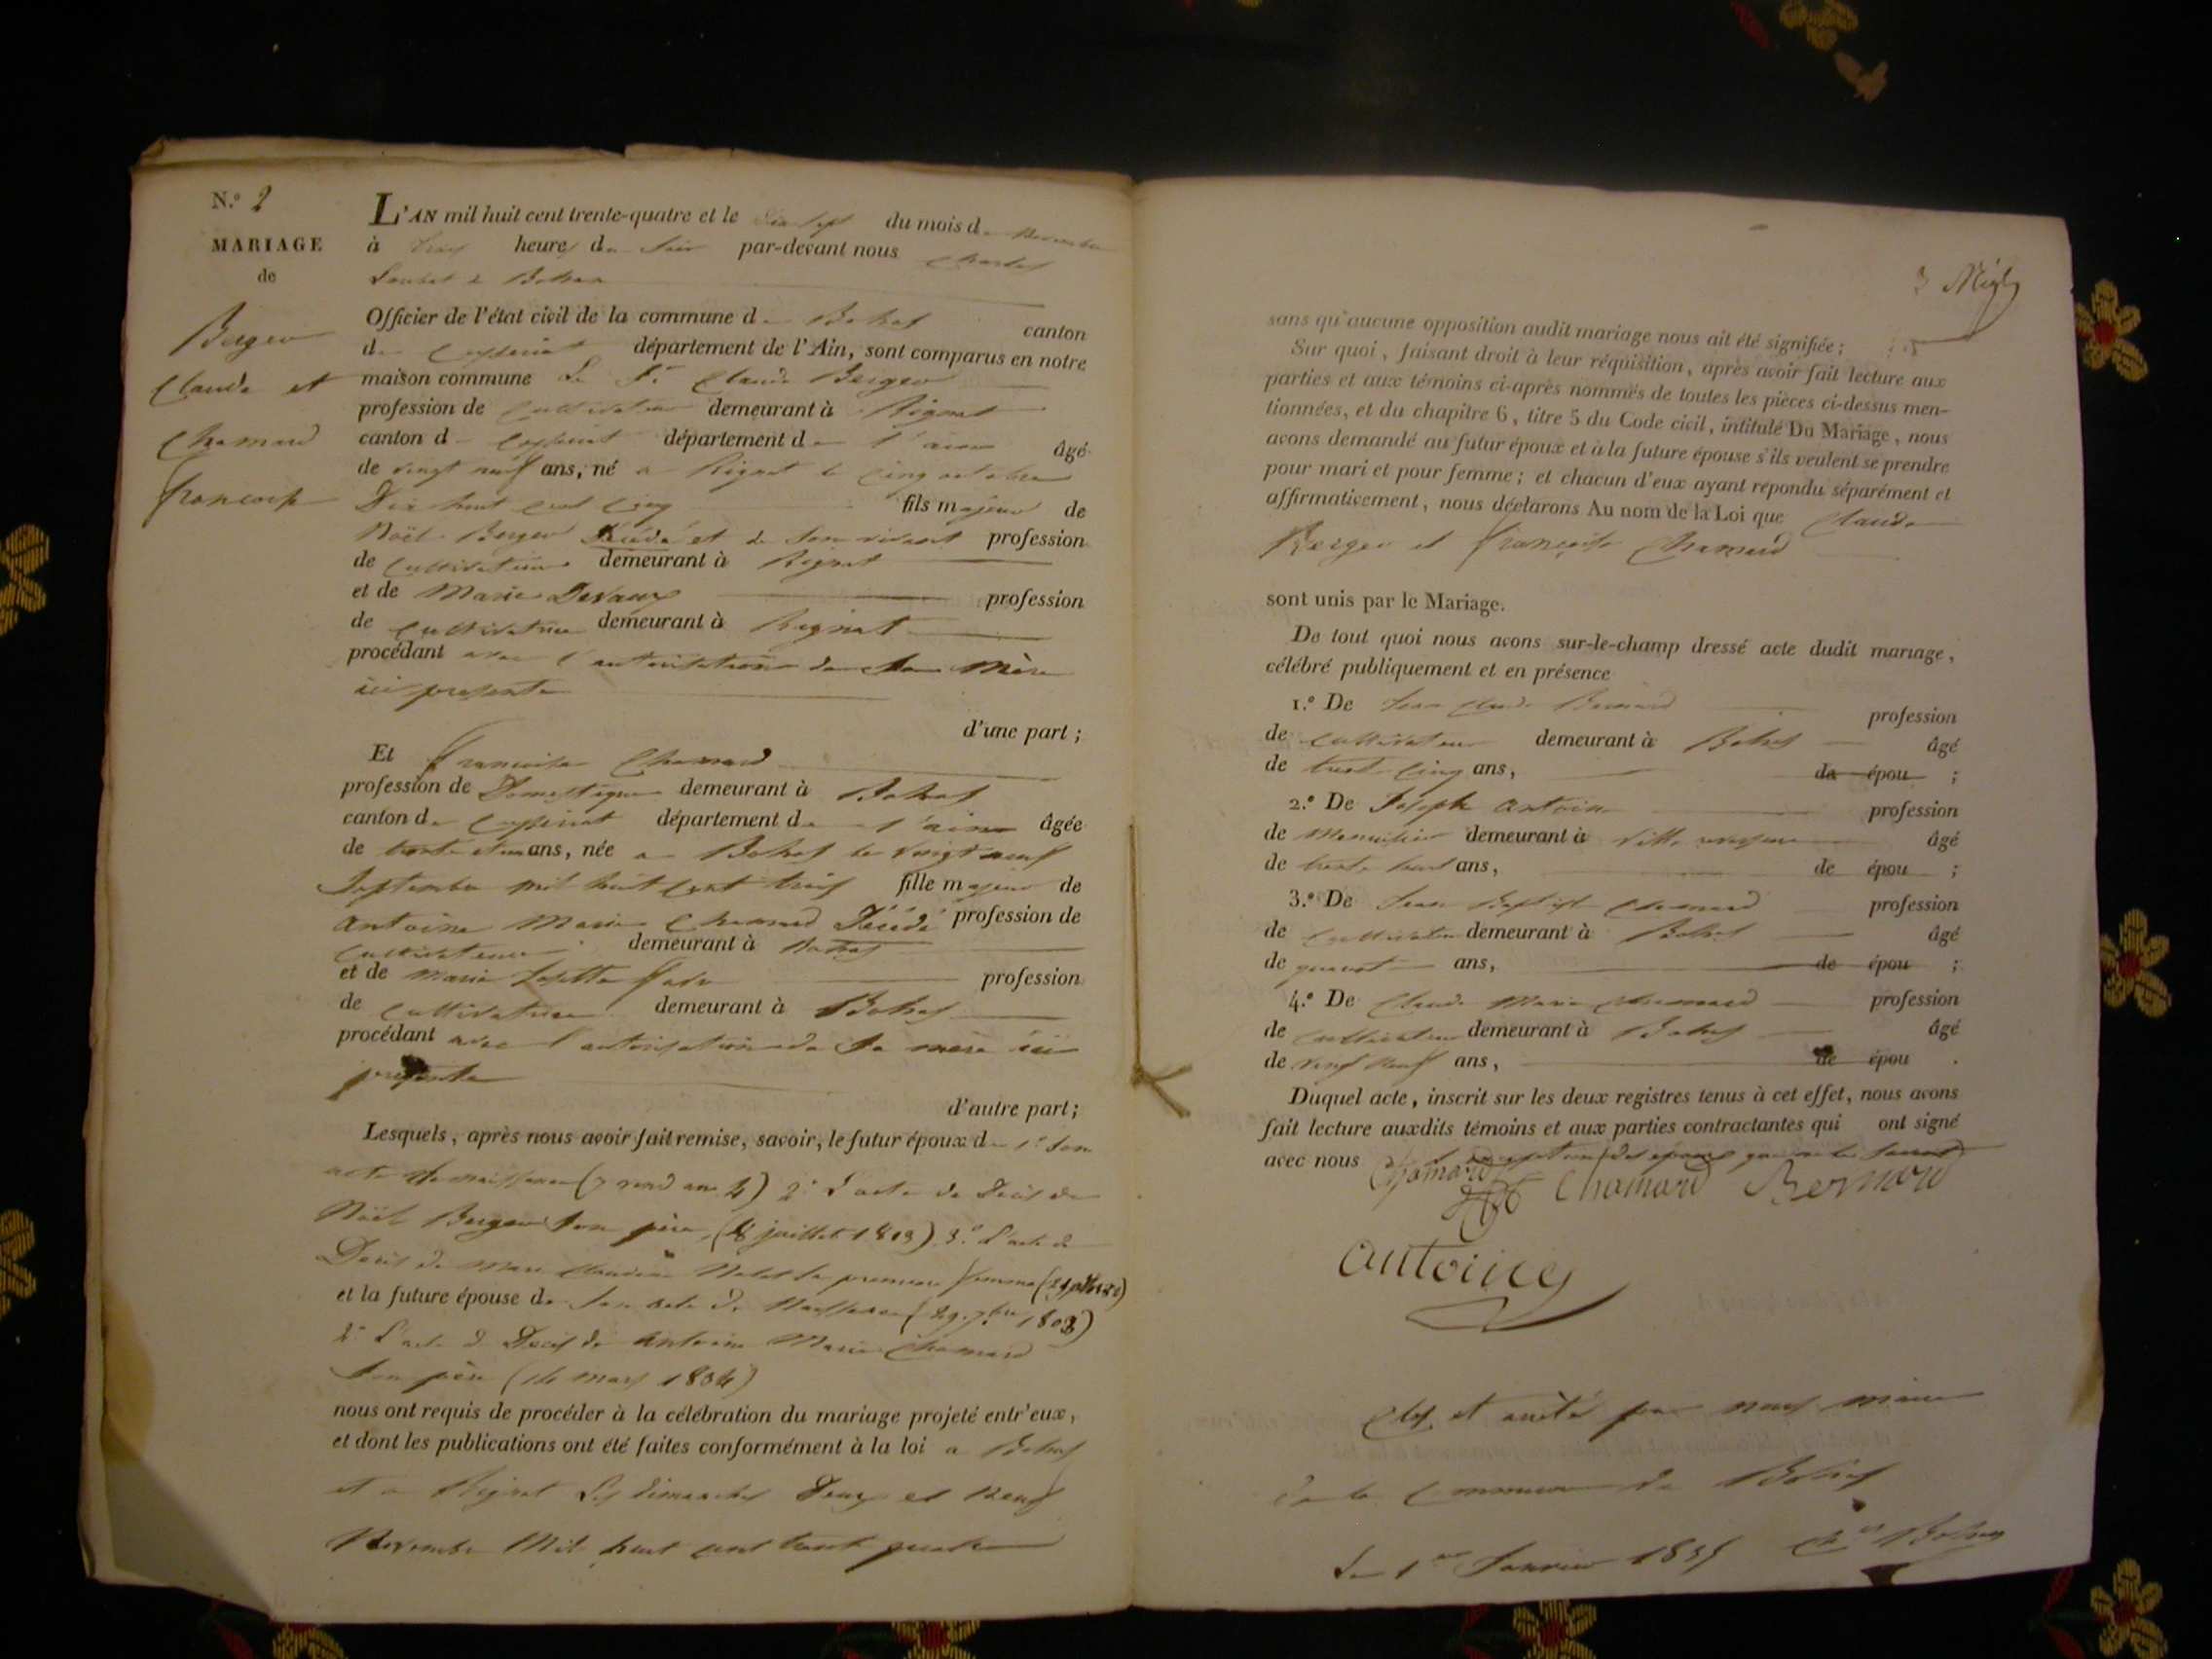 N.º 2
MARIAGE
de
Berger
Claude et
Chamard
françoise
L'AN mil huit cent trente-quatre et le dix sept du mois de Novembre
à trois heures du soir par-devant nous Charles
Officier de l'état civil de la commune de Bohas canton
de Ceyzeriat département de l'Ain, sont comparus en notre
maison commune Le Sr Claude Berger
profession de Cultivateur demeurant à Rignat
canton de Ceyzeriat département de l'ain âgé
de vingt neuf ans, né a Rignat le cinq octobre
Dix huit cent cinq fils majeur de
Noël Berger Décédé et de son vivant profession
de Cultivateur demeurant à Rignat
et de Marie Devaux profession
de Cultivatrice demeurant à Rignat
procédant avec l'autorisation de sa Mère
ici presente
d'une part ;
Et françoise Chamard
profession de Domestique demeurant à Bohas
canton de Ceyzeriat département de l'ain âgée
de trente et un ans, née a Bohas le vingt neuf
Septembre mil huit cent trois fille majeure de
Antoine Marie Chamard Décédé profession de
Cultivateur demeurant à Bohas
et de Marie Josette profession
de Cultivatrice demeurant à Bohas
procédant avec l'autorisation de sa mère ici
presente
d'autre part ;
Lesquels, après nous avoir fait remise, savoir, le futur époux de 1º son
acte de naissance ( 2º L'acte de Décès de
Noël Berger son père, (8 juillet 1813) 3º L'acte de
Décès de Marie Claudine sa premiere femme
et la future épouse de son acte de Naissance (29. 7bre 1803)
2º L'acte de Décès de Antoine Marie Chamard
son père (14 mars 1834)
nous ont requis de procéder à la célébration du mariage projeté entr'eux,
et dont les publications ont été faites conformément à la loi a Bohas
et a Rignat Les dimanches Deux et Neuf
Novembre Mil huit cent trente quatre
3
sans qu'aucune opposition audit mariage nous ait été signifiée ;
Sur quoi, faisant droit à leur réquisition, après avoir fait lecture aux
parties et aux témoins ci-après nommés de toutes les pièces ci-dessus men-
tionnées, et du chapitre 6, titre 5 du Code civil, intitulé Du Mariage, nous
avons demandé au futur époux et à la future épouse s'ils veulent se prendre
pour mari et pour femme ; et chacun d'eux ayant répondu séparément et
affirmativement, nous déclarons Au nom de la Loi que Claude
Berger et françoise Chamard
sont unis par le Mariage.
De tout quoi nous avons sur-le-champ dressé acte dudit mariage,
célébré publiquement et en présence
1.º De Jean Claude Bernard profession
de Cultivateur demeurant à Bohas âgé
de trente cinq ans, de épou ;
2.º De Joseph Antoine profession
de Menuisier demeurant à Ville reversure âgé
de trente huit ans, de épou ;
3.º De Jean Baptiste Chamard profession
de Cultivateur demeurant à Bohas âgé
de quarante ans, de épou ;
4.º De Claude Marie Chamard profession
de Cultivateur demeurant à Bohas âgé
de vingt neuf ans, de épou .
Duquel acte, inscrit sur les deux registres tenus à cet effet, nous avons
fait lecture auxdits témoins et aux parties contractantes qui ont signé
avec nous à l'exception des époux qui ne le savent
Chamard Chamard Bernard
Antoine
Clos et arrêté par nous maire
de la Commune de Bohas
Le 1er Janvier 1835